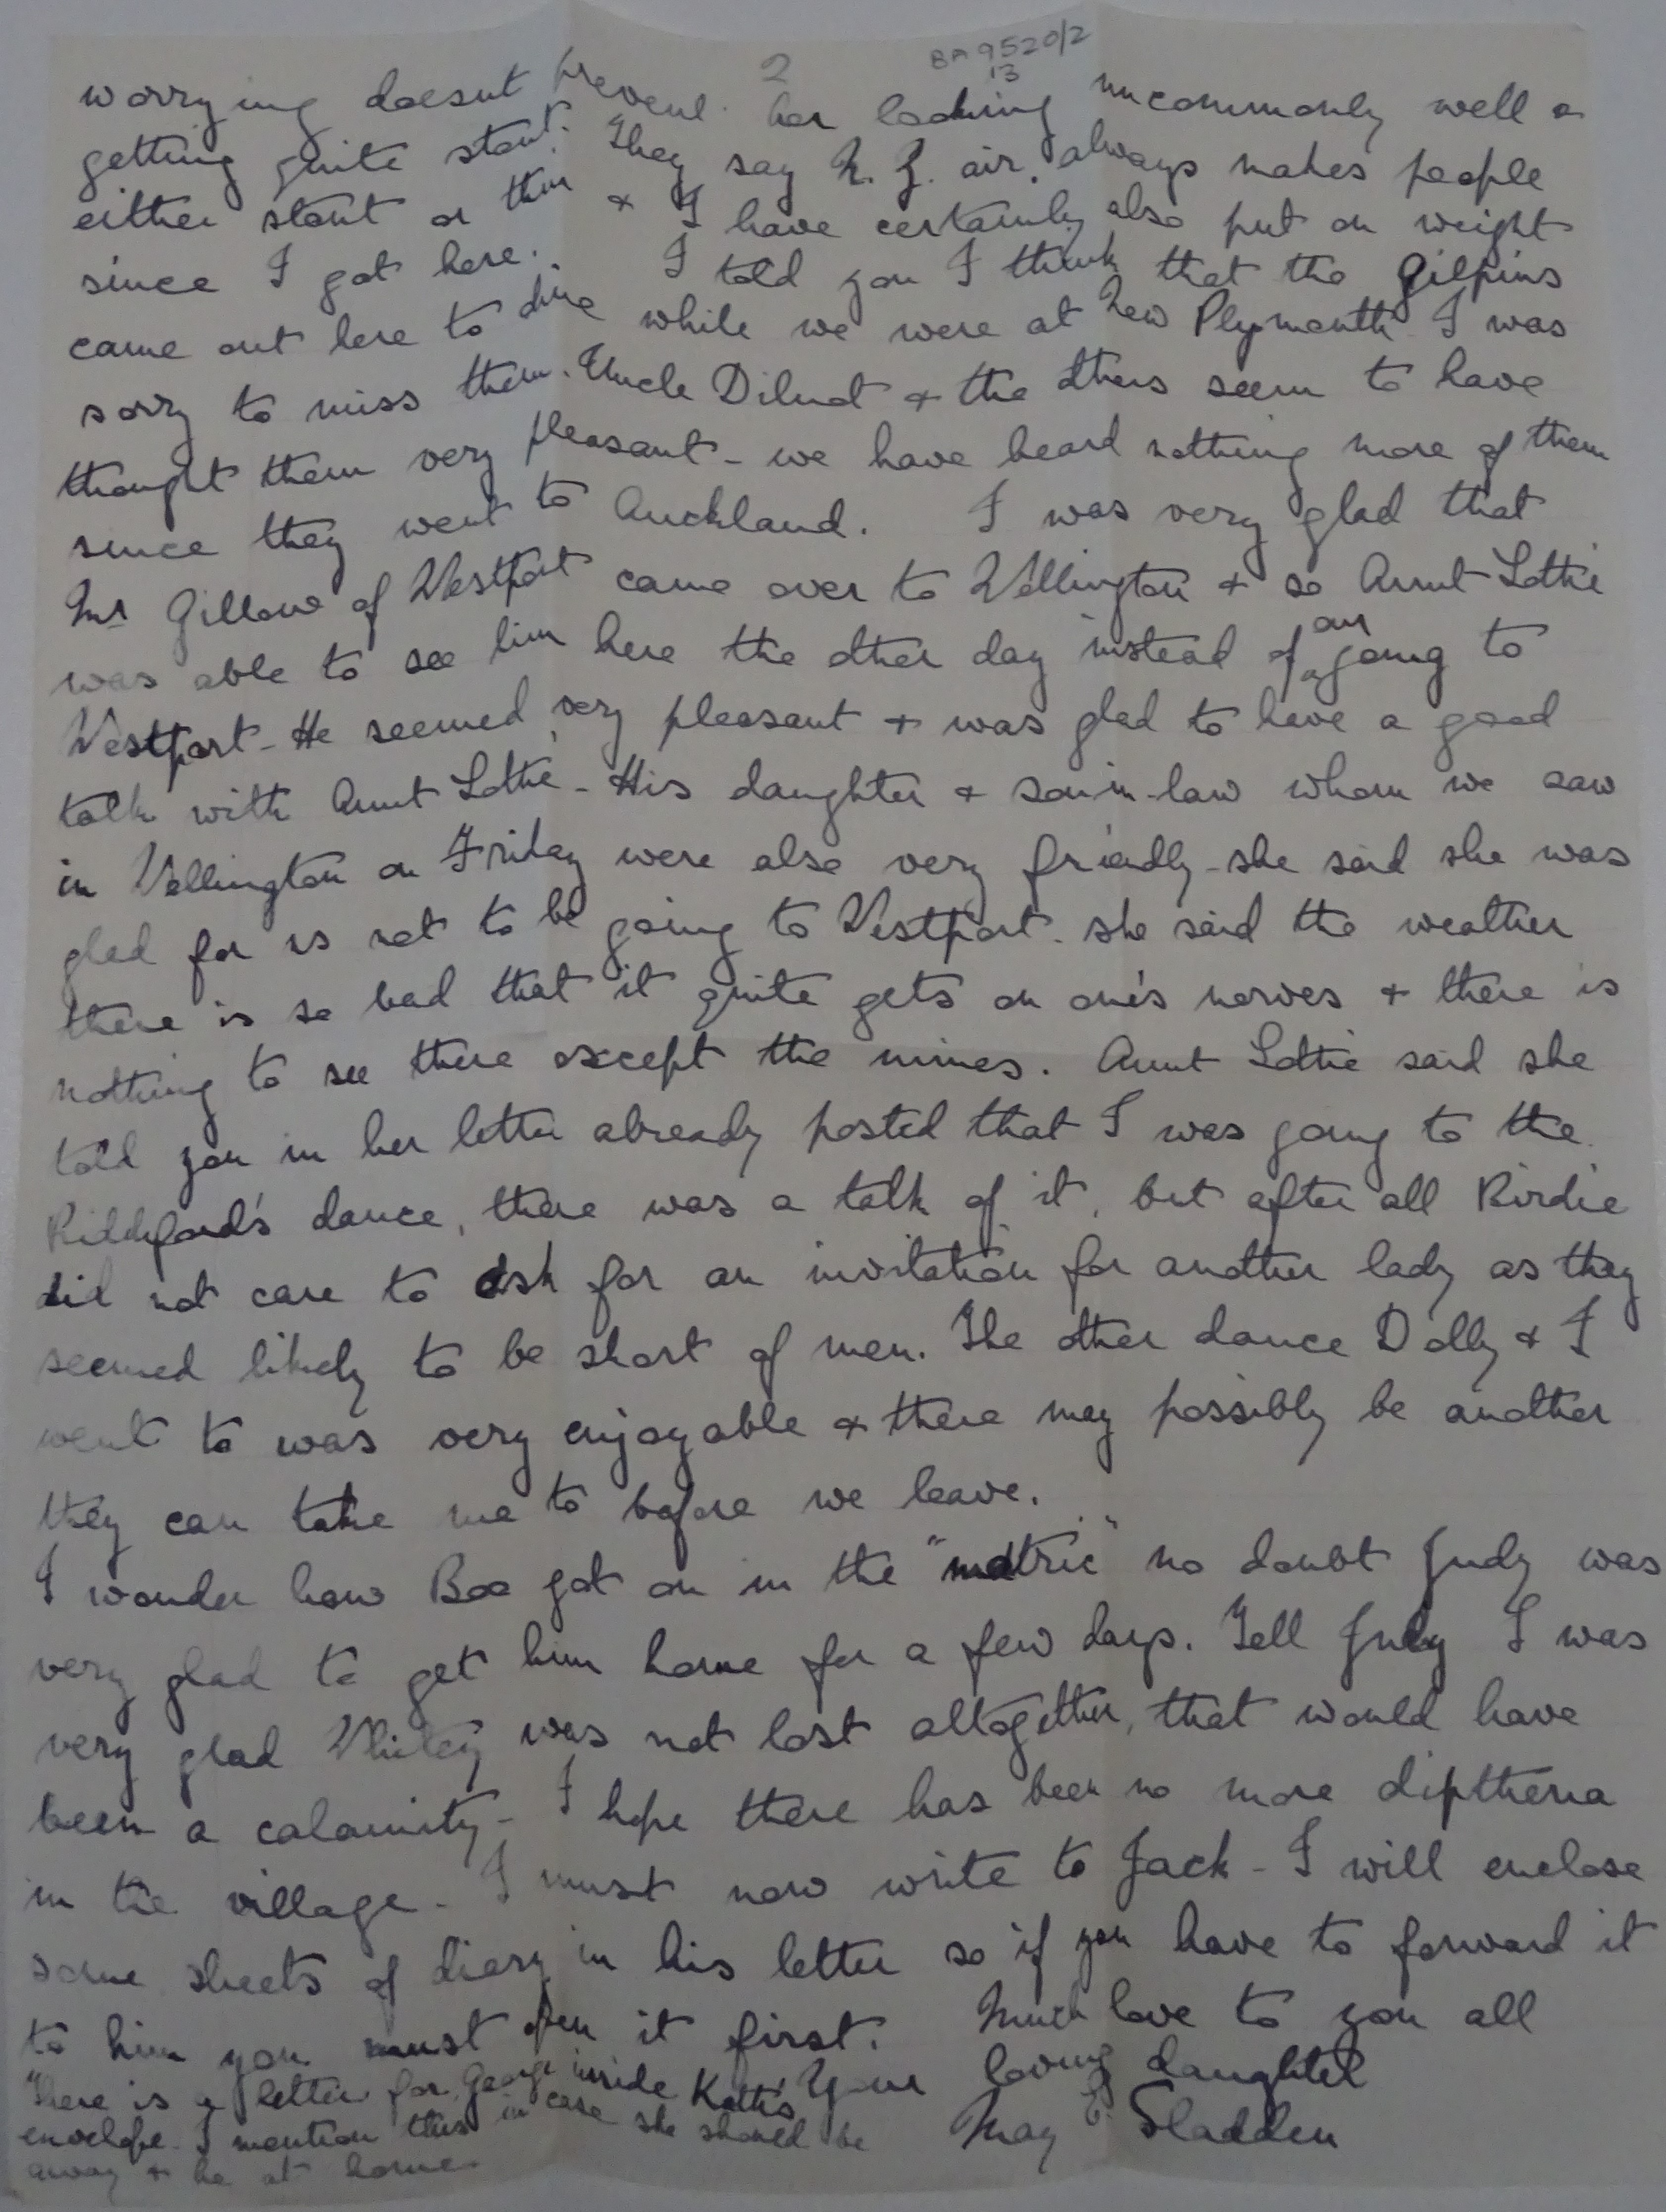 2 BA 9520/2
13
worrying doesnt prevent her looking uncommonly well &
getting quite stout. They say N. Z. air always makes people
either stout or thin & I have certainly also put on weight
since I got here. I told you I think that the Gilpins
came out here to dine while we were at New Plymouth I was
sorry to miss them. Uncle Dilnot & the others seem to have
thought them very pleasant - we have heard nothing more of them
since they went to Auckland. I was very glad that
Mr Gillow of Westport came over to Wellington & so Aunt Lottie
was able to see him here the other day instead of our going to
Westport - He seemed very pleasant & was glad to have a good
talk with Aunt Lottie - His daughter & son-in-law whom we saw
in Wellington on Friday were also very friendly - she said she was
glad for us not to be going to Westport. she said the weather
there is so bad that it quite gets on one's nerves & there is
nothing to see there except the mines. Aunt Lottie said she
told you in her letter already posted that I was going to the
Riddiford's dance, there was a talk of it, but after all Birdie
did not care to ask for an invitation for another lady as they
seemed likely to be short of men. The other dance Dolly & I
went to was very enjoyable & there may possibly be another
they can take me to before we leave.
I wonder how Boo got on in the "matric" no doubt Judy was
very glad to get him home for a few days. Tell Judy I was
very glad Whitey was not lost altogether, that would have
been a calamity - I hope there has been no more diptheria
in the village - I must now write to Jack - I will enclose
some sheets of diary in his letter so if you have to forward it
to him you must open it first. Much love to you all
Your loving daughter
May E. Sladden
There is a letter for George inside Kath's
envelope - I mention this in case she should be
away & he at home.